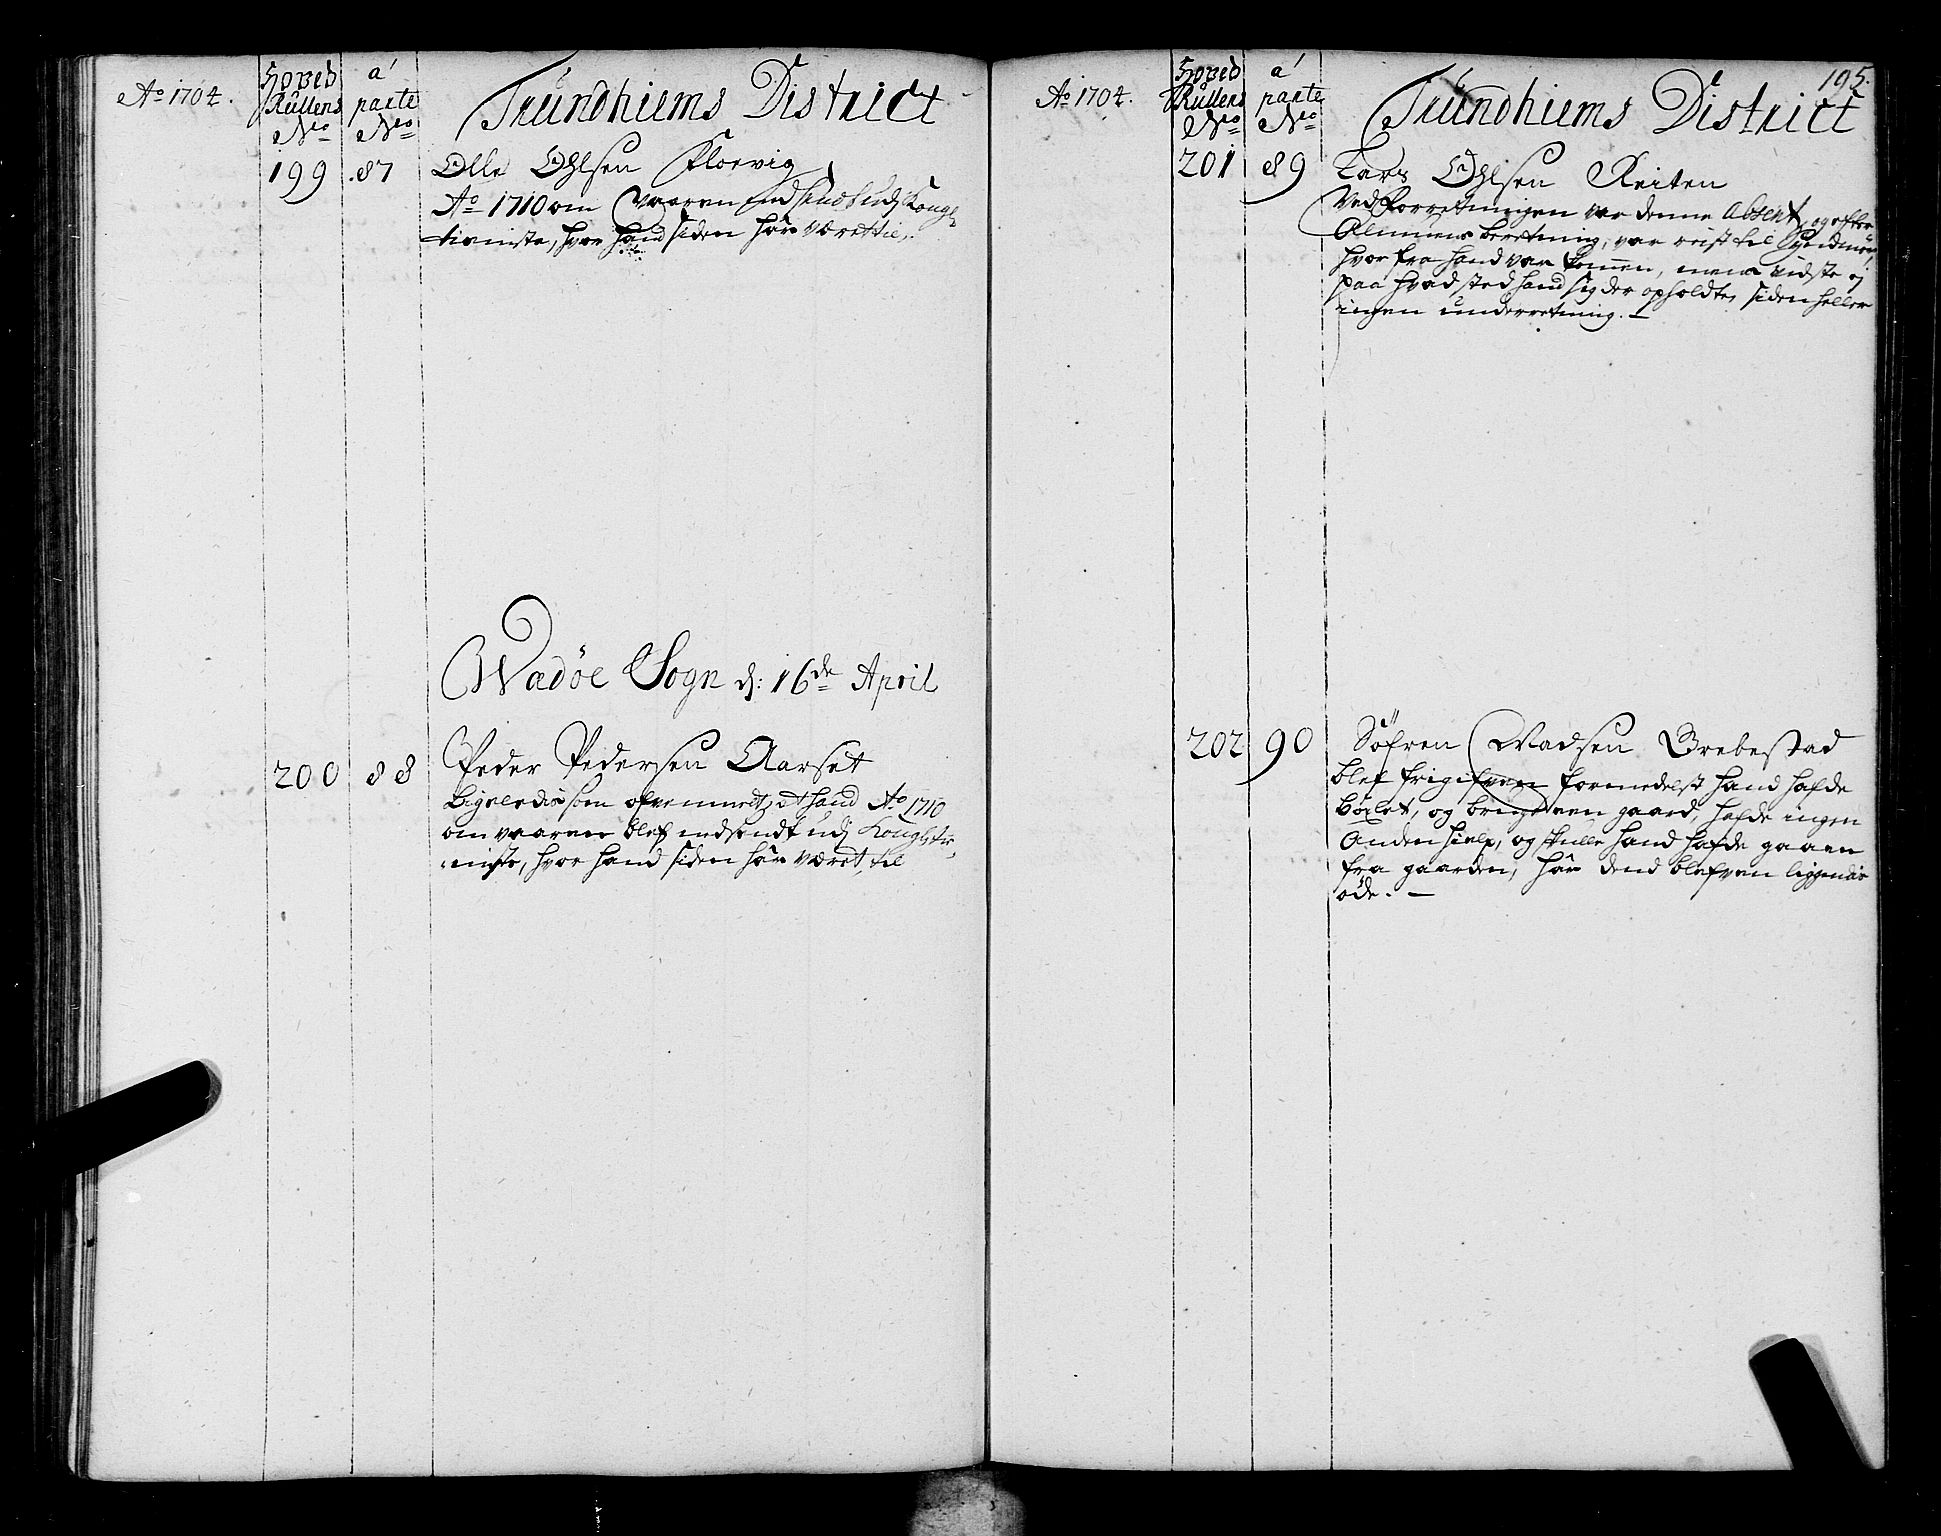 Ao 1704.
Hoved
Rullens
No
a'
parte
No
Trundhiems District
199 87 Olle Ohlsen Floevig
Ao 1710 om Vaaren indsendt udj Kongl
tieniste, hvor hand siden har været til.
Wadöe Sogn d: 16de April
200 88 Peder Pedersen Aarset
Ligeledis som ofvenmelt, at hand Ao 1710
om vaaren blef indsendt udj Kongl: tie-
niste, hvor hand siden har været til
195.
Ao 1704.
Hoved
Rullens
No
a'
parte
No
Trundhiems District
201 89 Lars Ohlsen Reiten
Ved Forretningen var denne Absent, og efter
Almuens beretning, var reist til Syndmör,
hvor fra hand var kommen, men vidste ej
paa hvad sted hand sig der opholdte, siden heller
ingen underretning. –
202 90 Söfren Madsen Brebestad
blef frigifven formedelst hand hafde
böxlet, og bruget een gaard, hafde ingen
Anden hielp, og skulle hand hafde gaaen
fra gaarden, har dend blefven liggendis
öde. –